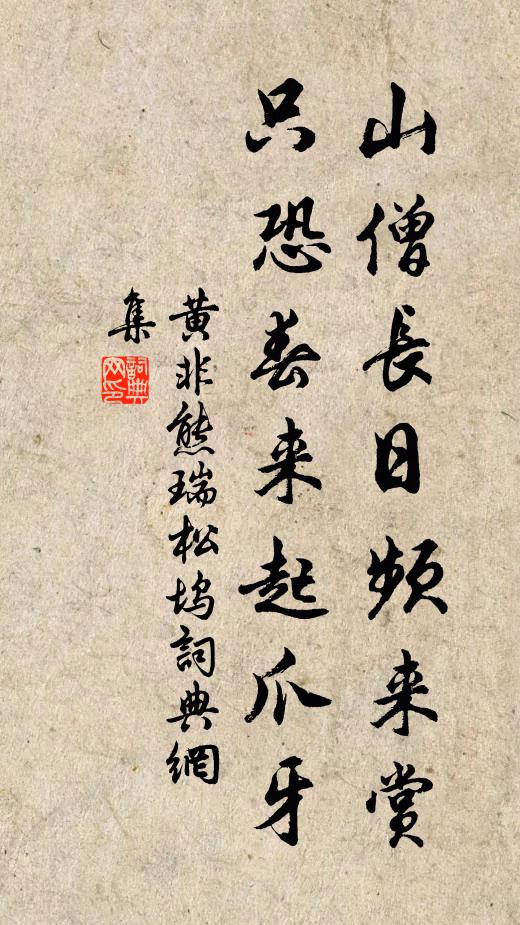 山僧長日頻来賞
只恐春来起爪牙
黄非熊瑞松塢詞典網
集
詞典
网印